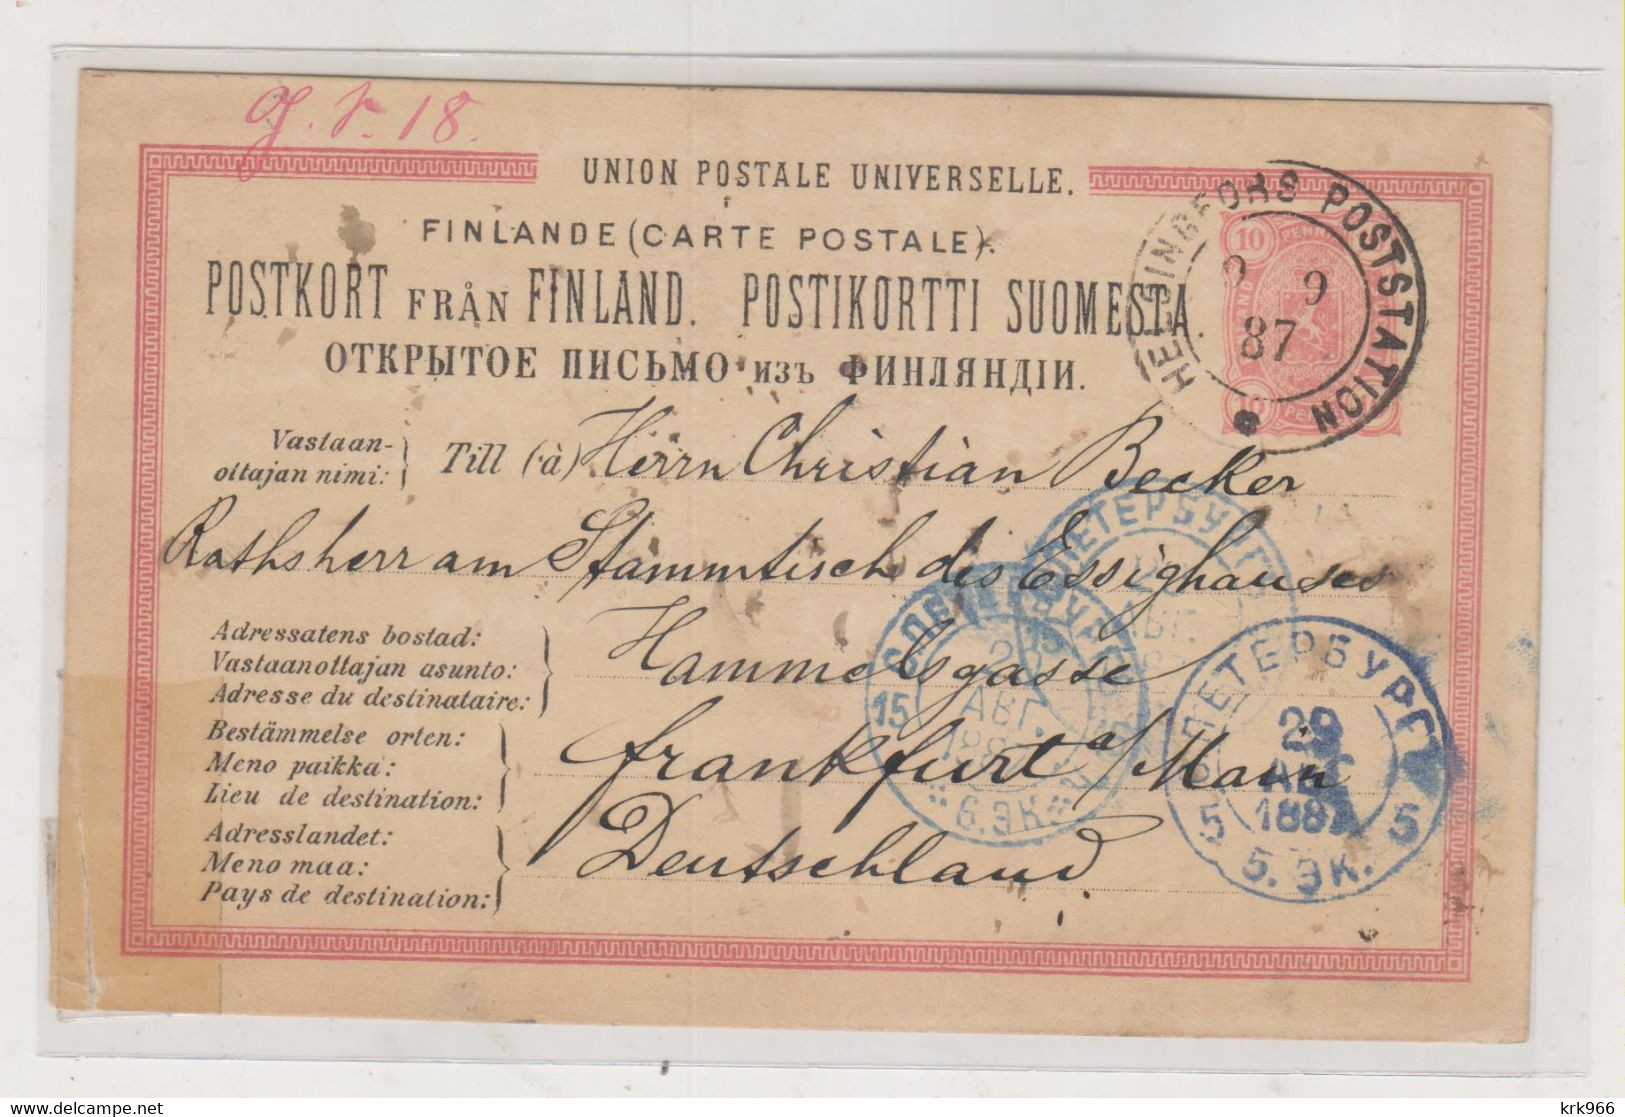 g. v. 18.
UNION POSTALE UNIVERSELLE.
FINLANDE (CARTE POSTALE).
POSTKORT FRÅN FINLAND. POSTIKORTTI SUOMESTA.
ОТКРЫТОЕ ПИСЬМО изъ ФИНЛЯНДІИ.
HELSINGFORS POSTSTATION
9 9
87
10 PENNI
10 PEN
Vastaan-
ottajan nimi:
Till (à) Herrn Christian Becker
Rathsherr am Stammtisch des Essighauses
Adressatens bostad:
Vastaanottajan asunto:
Adresse du destinataire:
Hammelsgasse
Bestämmelse orten:
Meno paikka:
Lieu de destination:
Frankfurt a/Main
Adresslandet:
Meno maa:
Pays de destination:
Deutschland
ПЕТЕРБУРГ
АВГ.
15
АВГ.
6. ЭК.
С. ПЕТЕРБУРГЪ
29
АВГ
1887
5 5
5. ЭК.
krk966